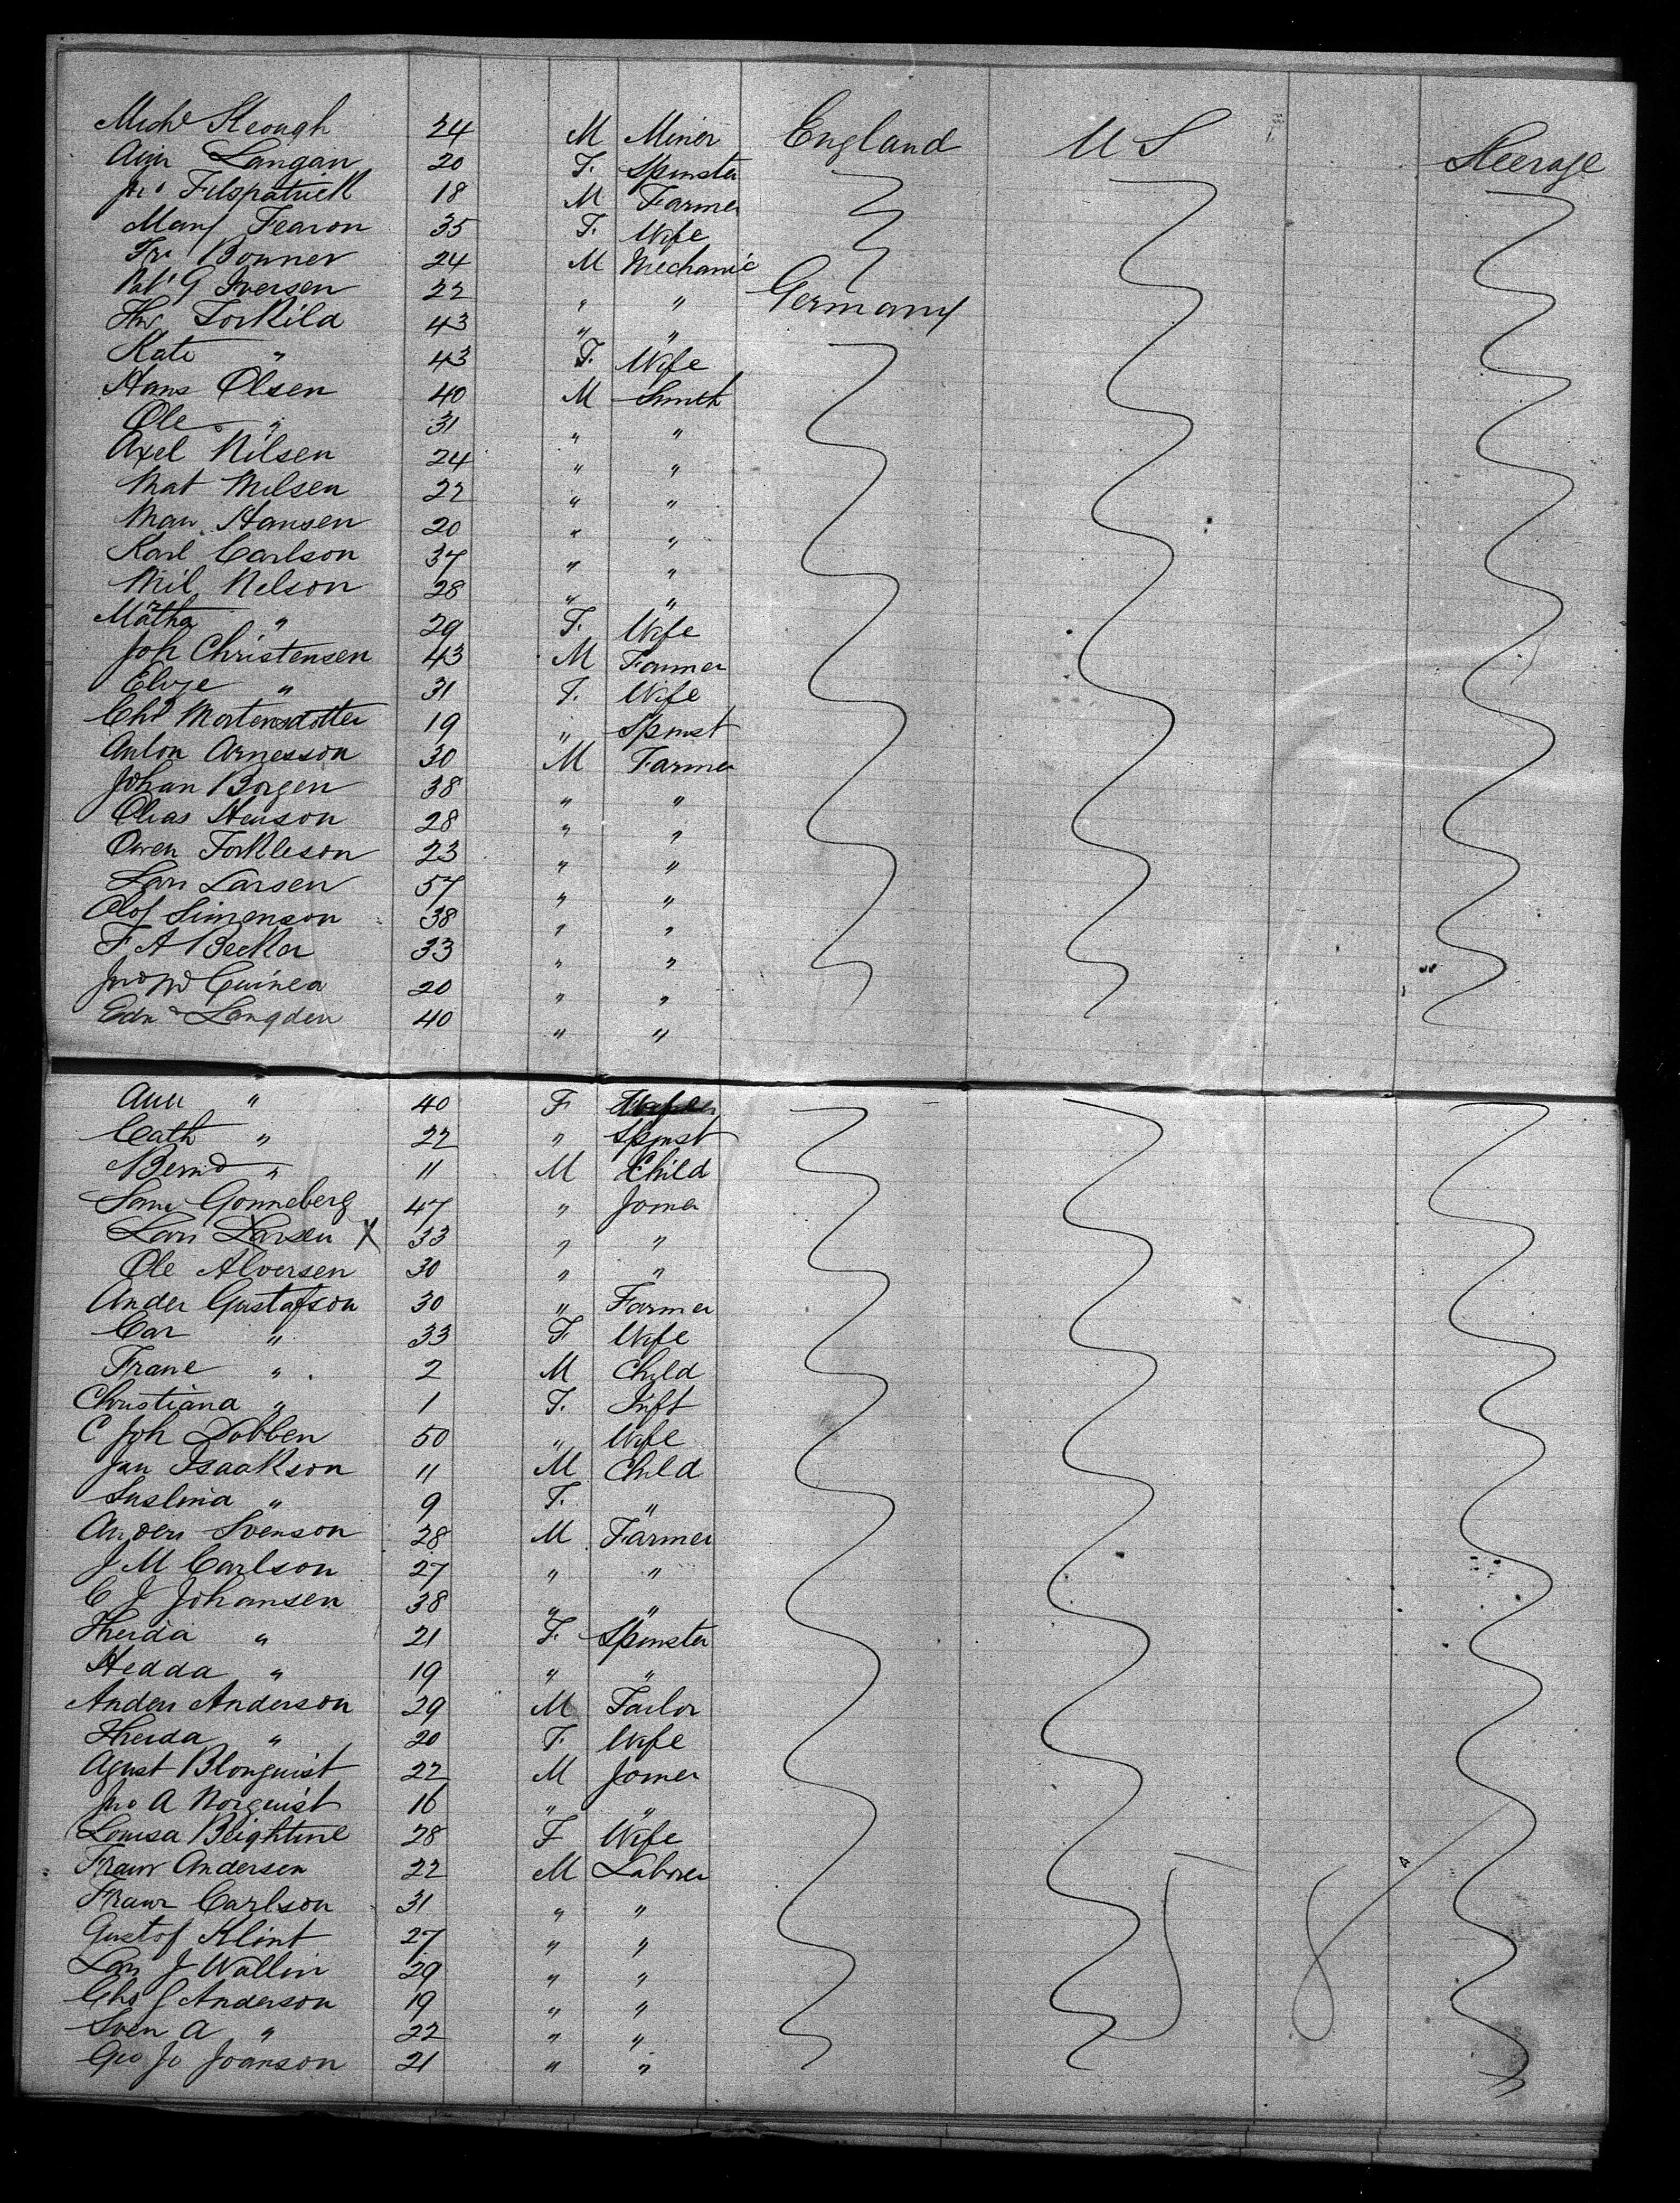 Michl Keough 24 M Miner England U S Steerage
Langan 20 F. Spinster
Jno Fitzpatrick 18 M Farmer
Mary Fearon 35 F. Wife
Frs Bonner 24 M Mechanic
G Iversen 22 " " Germany
Torkild 43 " "
Kate " 43 F. Wife
Hans Olsen 40 M Smith
Ole " 31 " "
Axel Nilsen 24 " "
Mat Nilsen 22 " "
Hansen 20 " "
Karl Carlson 37 " "
Nil Nelson 28 " "
Martha " 29 F. Wife
Joh Christensen 43 M Farmer
Elize " 31 F. Wife
Chr Mortensdotter 19 " Spinst
Anton Arnesson 30 M Farmer
Johan Borgen 38 " "
Olias 28 " "
Owen Torkleson 23 " "
Lars Larsen 57 " "
Olof Simenson 38 " "
F A Becker 33 " "
Guinea 20 " "
Edw Langden 40 " "
Ann " 40 F Wife
Cath " 22 " Spinst
Bernd " 11 M Child
Gonneberg 47 " Joiner
Lars Larsen X 33 " "
Ole Alversen 30 " "
Ander Gustafson 30 " Farmer
Car " 33 F. Wife
Frane " 2 M Child
Christiana " 1 F. Inft
C Joh Dobben 50 " Wife
Jan Isaakson 11 M Child
" 9 F. "
Anders Svenson 28 M Farmer
J M Carlson 27 " "
C J Johansen 38 " "
" 21 F. Spinster
Hedda " 19 " "
Anders Anderson 29 M Tailor
" 20 F. Wife
Agust Blonquist 22 M Joiner
Jno A Norquist 16 " "
Louisa 28 F Wife
Andersen 22 M Laborer
Carlson 31 " "
Gustof Klint 27 " "
Lars J Wallin 29 " "
Chs G Anderson 19 " "
Sven A " 22 " "
Geo Jo Joanson 21 " "
58